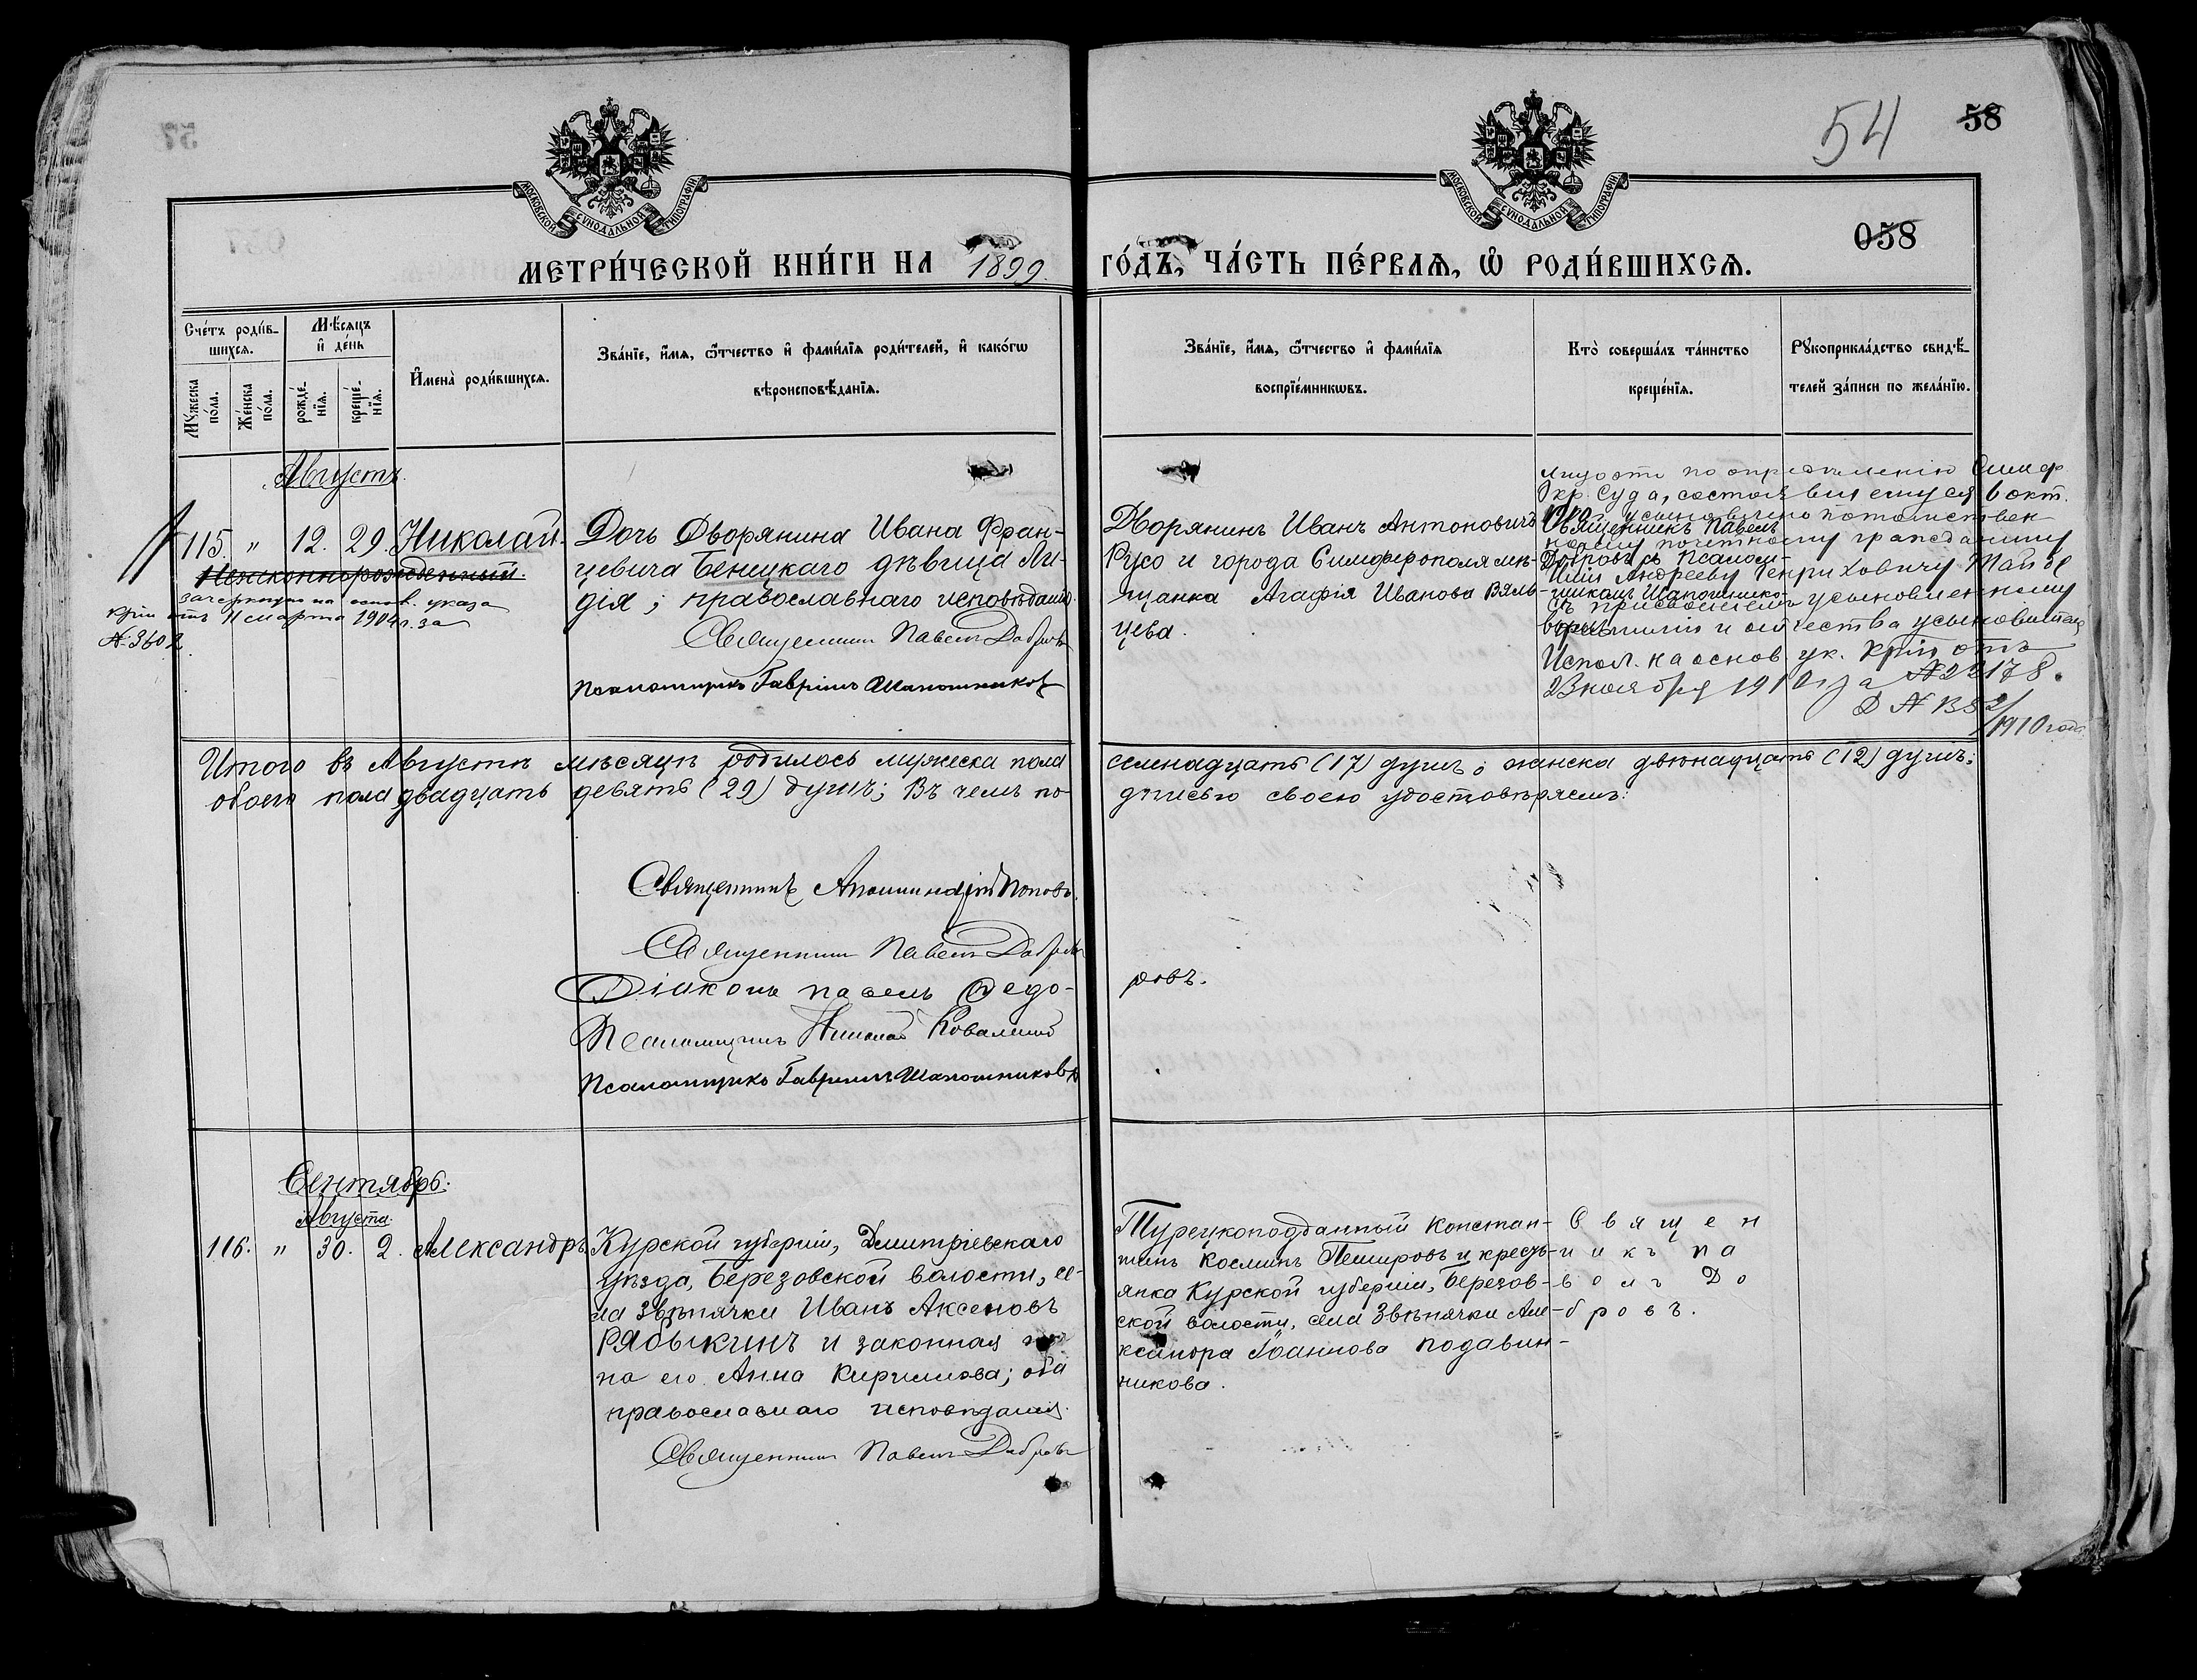 54
58
058
МОСКОВСКОЙ СѴНОДАЛЬНОЙ ТИПОГРАФІИ
МОСКОВСКОЙ СѴНОДАЛЬНОЙ ТИПОГРАФІИ
МЕТРИ́ЧЕСКОЙ КНИ́ГИ НА 1899. ГО́ДЪ, ЧА́СТЬ ПЕ́РВАѦ, Ѡ҆ РОДИ́ВШИХСѦ.
Сче́тъ роди́в-
шихсѧ.
Мѣ́сѧцъ
и҆ де́нь
Мꙋ́жеска
по́ла.
Же́нска
по́ла.
рожде́-
нїѧ.
креще́-
нїѧ.
И҆мена̀ роди́вшихсѧ.
Зва́нїе, и҆́мѧ, ѻ҆́тчество и҆ фами́лїѧ роди́телей, и҆ како́гѡ
вѣроисповѣ́данїѧ.
Зва́нїе, и҆́мѧ, ѻ҆́тчество и҆ фами́лїѧ
воспрїе́мникѡвъ.
Кто̀ соверша́лъ та́инство
креще́нїѧ.
Рꙋкоприкла́дство свидѣ́-
телей за́писи по жела́нїю.
Августъ.
115. " 12. 29. Николай.
Незаконнорожденный.
зачеркнуто на основ. указа
крін отъ 11 марта 1904 г. за
№ 3602
Дочь Дворянина Ивана Фран-
цевича Бенецкаго дѣвица Ли-
дія; православнаго исповѣданія.
Священникъ Павелъ Добровъ
Псаломщикъ Гавріилъ Шапошниковъ
Дворянинъ Иванъ Антоновичъ
Русо и города Симферополя мѣ-
щанка Агафія Иванова Вяль-
цева.
Священникъ Павелъ
Добровъ съ Псалом-
щикомъ Шапошнико-
вымъ.
по опредѣленію Симф.
Окр. Суда, состоявшемуся 6 окт.
усыновлено потомствен
ному почетному гражданину
Андрееву Генриховичу
съ присвоеніемъ усыновленному
фамиліи и отчества усыновителя
Испол. на основ. ук. крін отъ
23 ноября 1910 г. за № 22178.
1910 года
Итого въ Августѣ мѣсяцѣ родилось мужеска пола семнадцать (17) душъ; женска двѣнадцать (12) душъ;
обоего пола двадцать девять (29) душъ; Въ чемъ по-дписью своею удостовѣряемъ:
Священникъ Аполлинарій Поповъ.
Священникъ Павелъ Добровъ
Діаконъ Павелъ Ѳедо-ровъ.
Псаломщикъ Николай
Псаломщикъ Гавріилъ Шапошниковъ
Сентябрь.
Августа.
116. " 30. 2. Александръ
Курской губерніи, Дмитріевскаго
уѣзда, Березовской волости, се-
ла Звѣнячки Иванъ Аксеновъ
Рябыкинъ и законная же-
на его Анна Кириллова; оба
православнаго исповѣданія.
Священникъ Павелъ Добровъ
Турецкоподданный Констан-
тинъ Косминъ Пемировъ и кресть-
янка Курской губерніи, Березов-
ской волости, села Звѣнячки Але-
ксандра Іоаннова Подавин-
никова.
Священ
никъ Па
велъ До
бровъ.